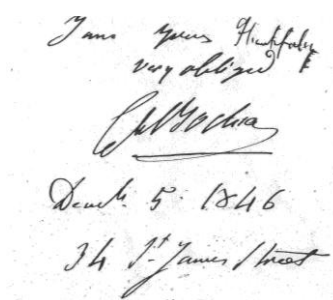 I am yours thankfully
very obliged
Decemb. 5. 1846
34 St James Street